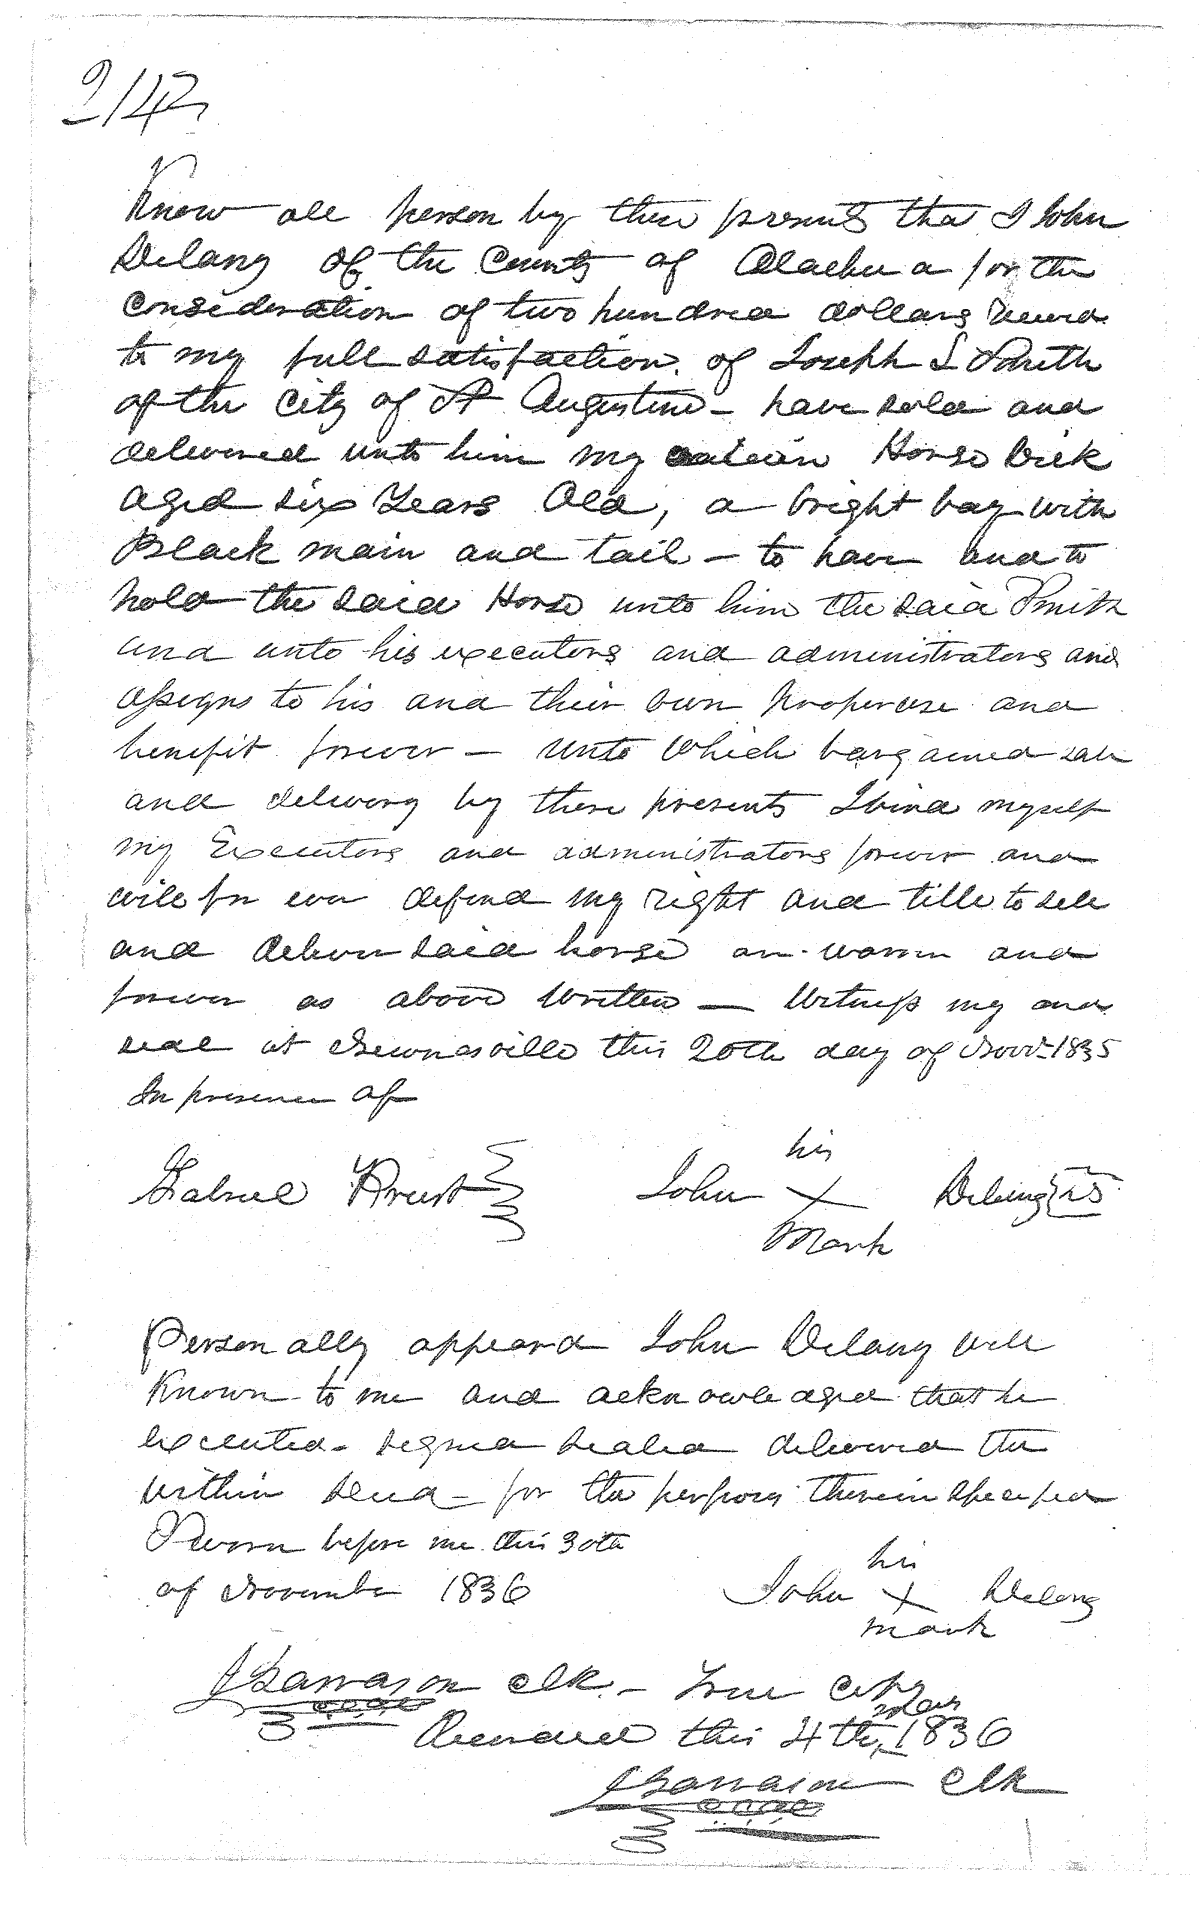 242
Know all person by these presents that I John
Delany of the County of Alachua for the
Consideration of two hundred dollars recevd
to my full satisfaction of Joseph L Smith
of the City of St Augustine – have sold and
delivered unto him my certain Horse Dick
aged six Years Old, a bright bay with
Black main and tail – to have and to
hold the said Horse unto him the said Smith
and unto his executors and administrators and
assigns to his and their own proper use and
benefit forever – Unto Which bargained sale
and delivery by these presents I bind myself
my Executors and administrators forever and
will for ever defend my right and title to sell
and deliver said horse and
forever as above Written — Witness my and
seal at Newnansville this 20th day of Novr 1835
In presence of
Gabriel Priest
his
John X Delany LS
Mark
Personally appeard John Delany well
Known to me and acknowledged that he
executed signed sealed delivered the
within deed – for the purposes therein specified
Sworn before me this 30th
of November 1836
his
John X Delany
mark
Clk – True Copy
Recorded this 4th 1836
Clk